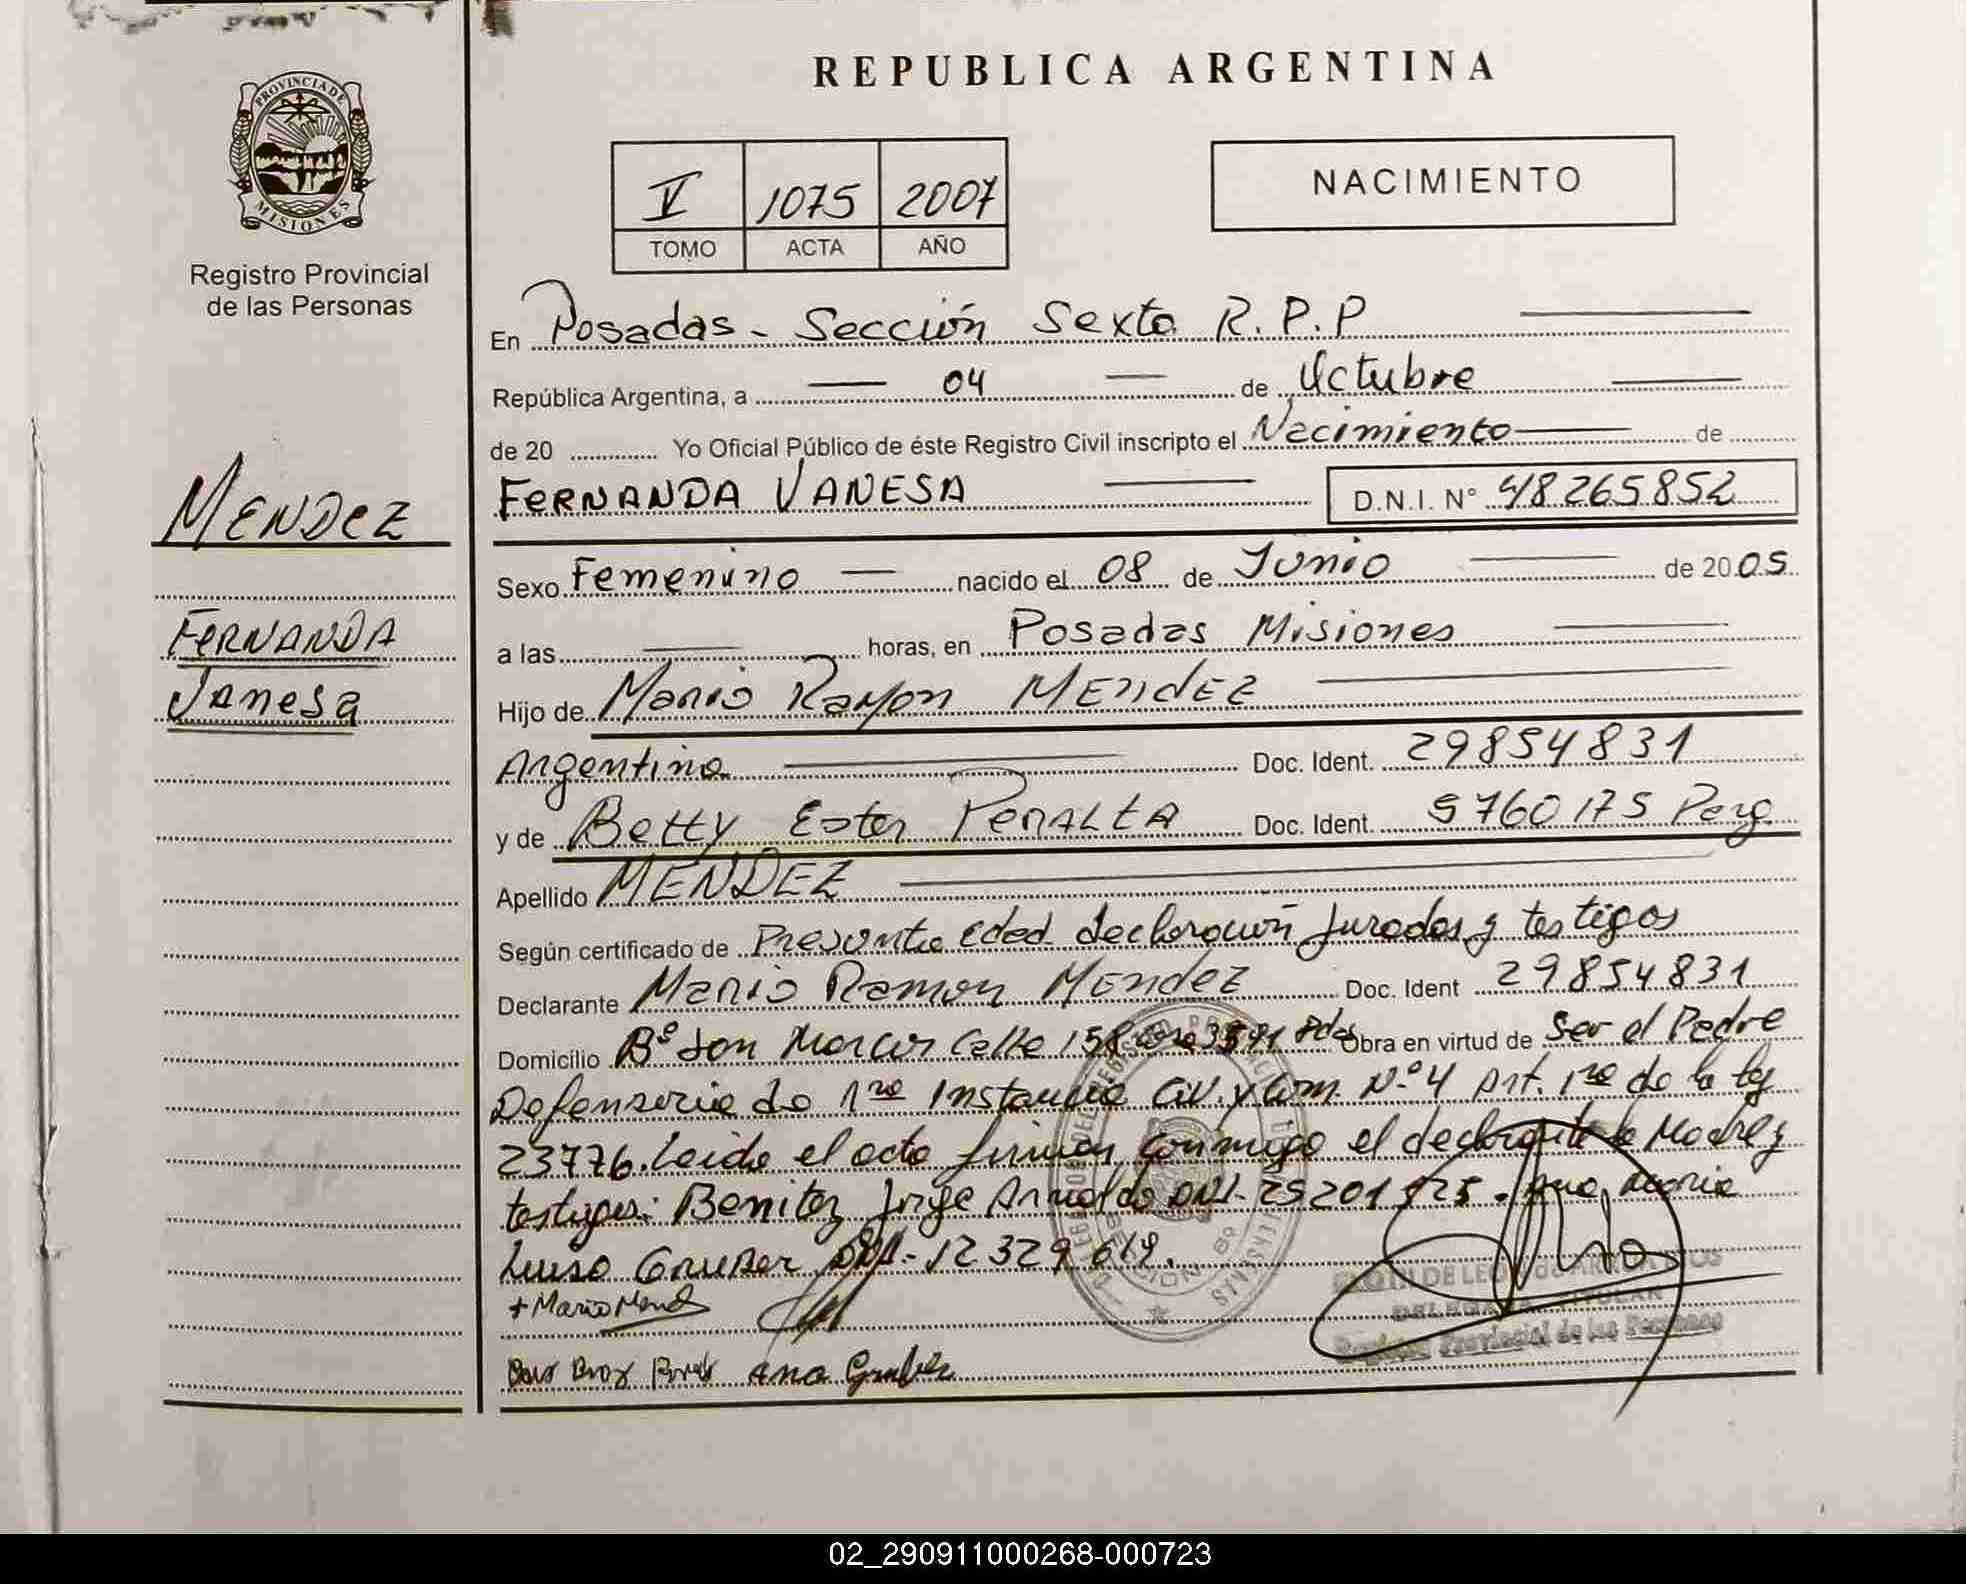 PROVINCIA DE
MISIONES
Registro Provincial
de las Personas
MENDEZ
FERNANDA
Vanesa
REPUBLICA ARGENTINA
V 1075 2007
TOMO ACTA AÑO
NACIMIENTO
En Posadas - Sección Sexta R.P.P
República Argentina, a 04 de Octubre
de 20 Yo Oficial Público de éste Registro Civil inscripto el Nacimiento de
FERNANDA VANESA D.N.I. N° 48265852
Sexo Femenino nacido el 08 de Junio de 2005
a las horas, en Posadas Misiones
Hijo de Mario Ramon MENDEZ
Argentino Doc. Ident. 29854831
y de Betty Ester PERALTA Doc. Ident. 5760175 Parg
Apellido MENDEZ
Según certificado de Presunta edad declaración Jurada y testigos
Declarante Mario Ramon Mendez Doc. Ident 29854831
Domicilio B° San Marcos Calle 158 Obra en virtud de Ser el Padre
Defensoria de 1ra Instancia Civ. y Com. N°4 Art. 1ro de la ley
23776. Leida el acta firman conmigo el declarante la Madre y
testigos: Benitez Jorge Arnaldo DNI- Ana Maria
Luisa Gruber DNI- 12329619.
+ Mario Mend
Ana Gruber
DELEGADA TITULAR
Registro Provincial de las Personas
02_290911000268-000723